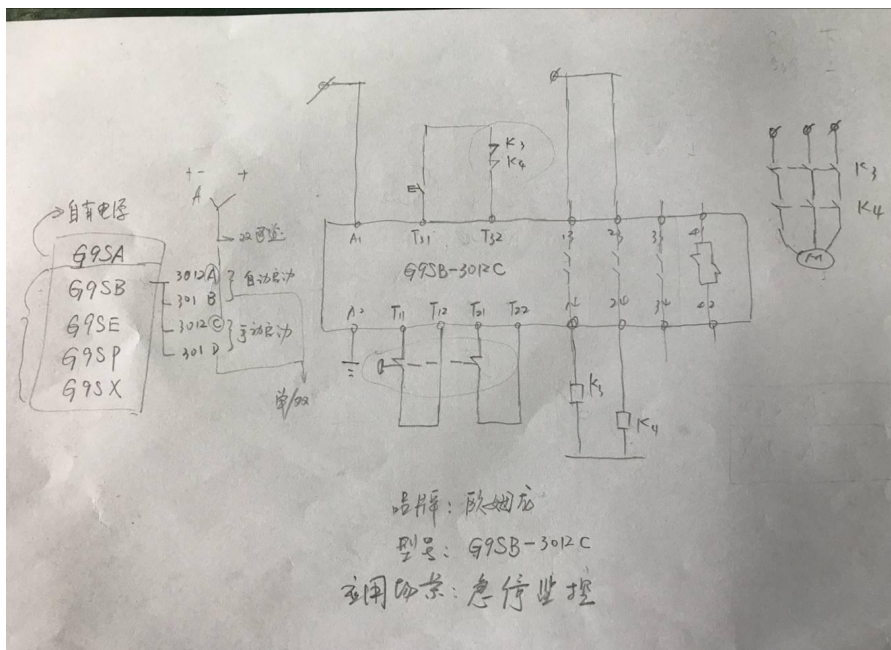 自有电源
G9SA
G9SB
G9SE
G9SP
G9SX
+- +
A
3012Ⓐ
301 B
自动启动
3012Ⓒ
301 D
手动启动
单/双
K3
K4
A1 T31 T32 13 23 33 41
G9SB-3012C
A2 T11 T12 T21 T22 14 24 34 42
K3
K4
K3
K4
M
品牌：欧姆龙
型号：G9SB-3012C
应用场景：急停监控